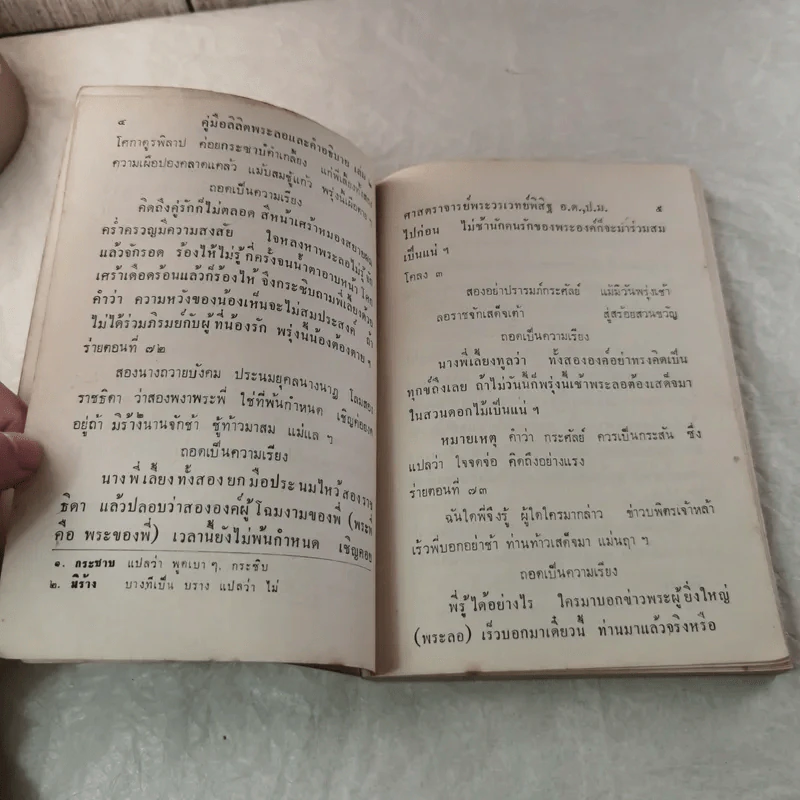 ๔ คู่มือลิลิตพระลอและคำอธิบาย เล่ม
โศกาดูรพิลาป ค่อยกระซาบ๑คำเกลี้ยง แก่พี่เลี้ยงทั้งสอง
ความเผือปองคลาดแคล้ว แม้บสมชู้แก้ว พรุ่งนี้เผือตาย ฯ
ถอดเป็นความเรียง
คิดถึงคู่รักก็ไม่ตลอด สีหน้าเศร้าหมองสยาย
คร่ำครวญมีความสงสัย ใจหลงหาพระลอไม่รู้
แล้วจักรอด ร้องไห้ไม่รู้กี่ครั้งจนน้ำตาอาบหน้า โศก
เศร้าเดือดร้อนแล้วก็ร้องไห้ จึงกระซิบถามพี่เลี้ยงด้วย
คำว่า ความหวังของน้องเห็นจะไม่สมประสงค์ ถ้า
ไม่ได้ร่วมภิรมย์กับผู้ที่น้องรัก พรุ่งนี้น้องต้องตาย ฯ
ร่ายตอนที่ ๗๒
สองนางถวายบังคม ประนมยุคลนางนาฏ โฉมสอง
ราชธิดา ว่าสองพงาพระพี่ ใช่ที่พ้นกำหนด เชิญค่อย
อยู่ถ้า มิร้าง๒นานจักช้า ชู้ท้าวมาสม แม่แล ฯ
ถอดเป็นความเรียง
นางพี่เลี้ยงทั้งสองยกมือประนมไหว้สองราช
ธิดา แล้วปลอบว่าสององค์ผู้โฉมงามของพี่ (พระพี่
คือ พระของพี่) เวลานี้ยังไม่พ้นกำหนด เชิญคอย
๑. กระซาบ แปลว่า พูดเบา ๆ, กระซิบ
๒. มิร้าง บางทีเป็น บราง แปลว่า ไม่
ศาสตราจารย์พระวรเวทย์พิสิฐ อ.ด.,ป.ม. ๕
ไปก่อน ไม่ช้านักคนรักของพระองค์ก็จะมาร่วมสม
เป็นแน่ ฯ
โคลง ๓
สองอย่าปรารมภ์กระศัลย์ แม้มิวันพรุ่งเช้า
ลอราชจักเสด็จเต้า สู่สร้อยสวนขวัญ
ถอดเป็นความเรียง
นางพี่เลี้ยงทูลว่า ทั้งสององค์อย่าทรงคิดเป็น
ทุกข์ถึงเลย ถ้าไม่วันนี้ก็พรุ่งนี้เช้าพระลอต้องเสด็จมา
ในสวนดอกไม้เป็นแน่ ฯ
หมายเหตุ คำว่า กระศัลย์ ควรเป็นกระสัน ซึ่ง
แปลว่า ใจจดจ่อ คิดถึงอย่างแรง
ร่ายตอนที่ ๗๓
ฉันใดพี่จึงรู้ ผู้ใดใครมากล่าว ข่าวบพิตรเจ้าหล้า
เร็วพี่บอกอย่าช้า ท่านท้าวเสด็จมา แม่นฤา ฯ
ถอดเป็นความเรียง
พี่รู้ได้อย่างไร ใครมาบอกข่าวพระผู้ยิ่งใหญ่
(พระลอ) เร็วบอกมาเดี๋ยวนี้ ท่านมาแล้วจริงหรือ